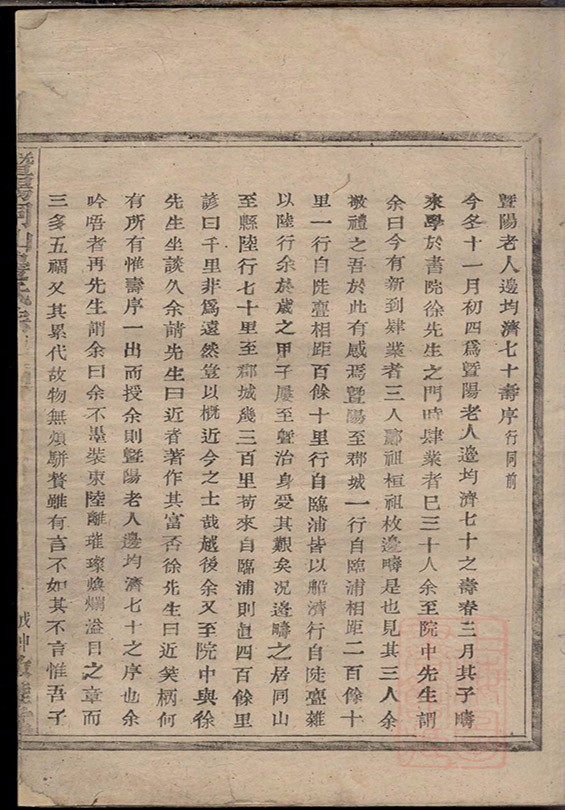 暨陽老人邊均濟七十壽序行同前
今冬十一月初四為暨陽老人邊均濟七十之壽春三月其子疇
來學於書院徐先生之門時肄業者已三十人余至院中先生謂
余曰今有新到肄業者三人酈祖桓祖枚邊疇是也見其三人余
敬禮之吾於此有感焉暨陽至郡城一行自臨浦相距二百餘十
里一行自陡亹相距百餘十里行自臨浦皆以船濟行自陡亹雜
以陸行余於歲之甲子屢至暨治身受其艱矣况邊疇之居同山
至縣陸行七十里至郡城幾三百里苟來自臨浦則眞四百餘里
諺曰千里非爲遠然豈以概近今之士哉越後余又至院中與徐
先生坐談久余請先生曰近者著作其富否徐先生曰近筴柄何
有所有惟壽序一出而授余則暨陽老人邊均濟七十之序也余
吟唔者再先生謂余曰余不墨裝東陸離璀璨煥爛溢目之章而
三多五福又其累代故物無煩駢贅雖有言不如其不言惟吾子